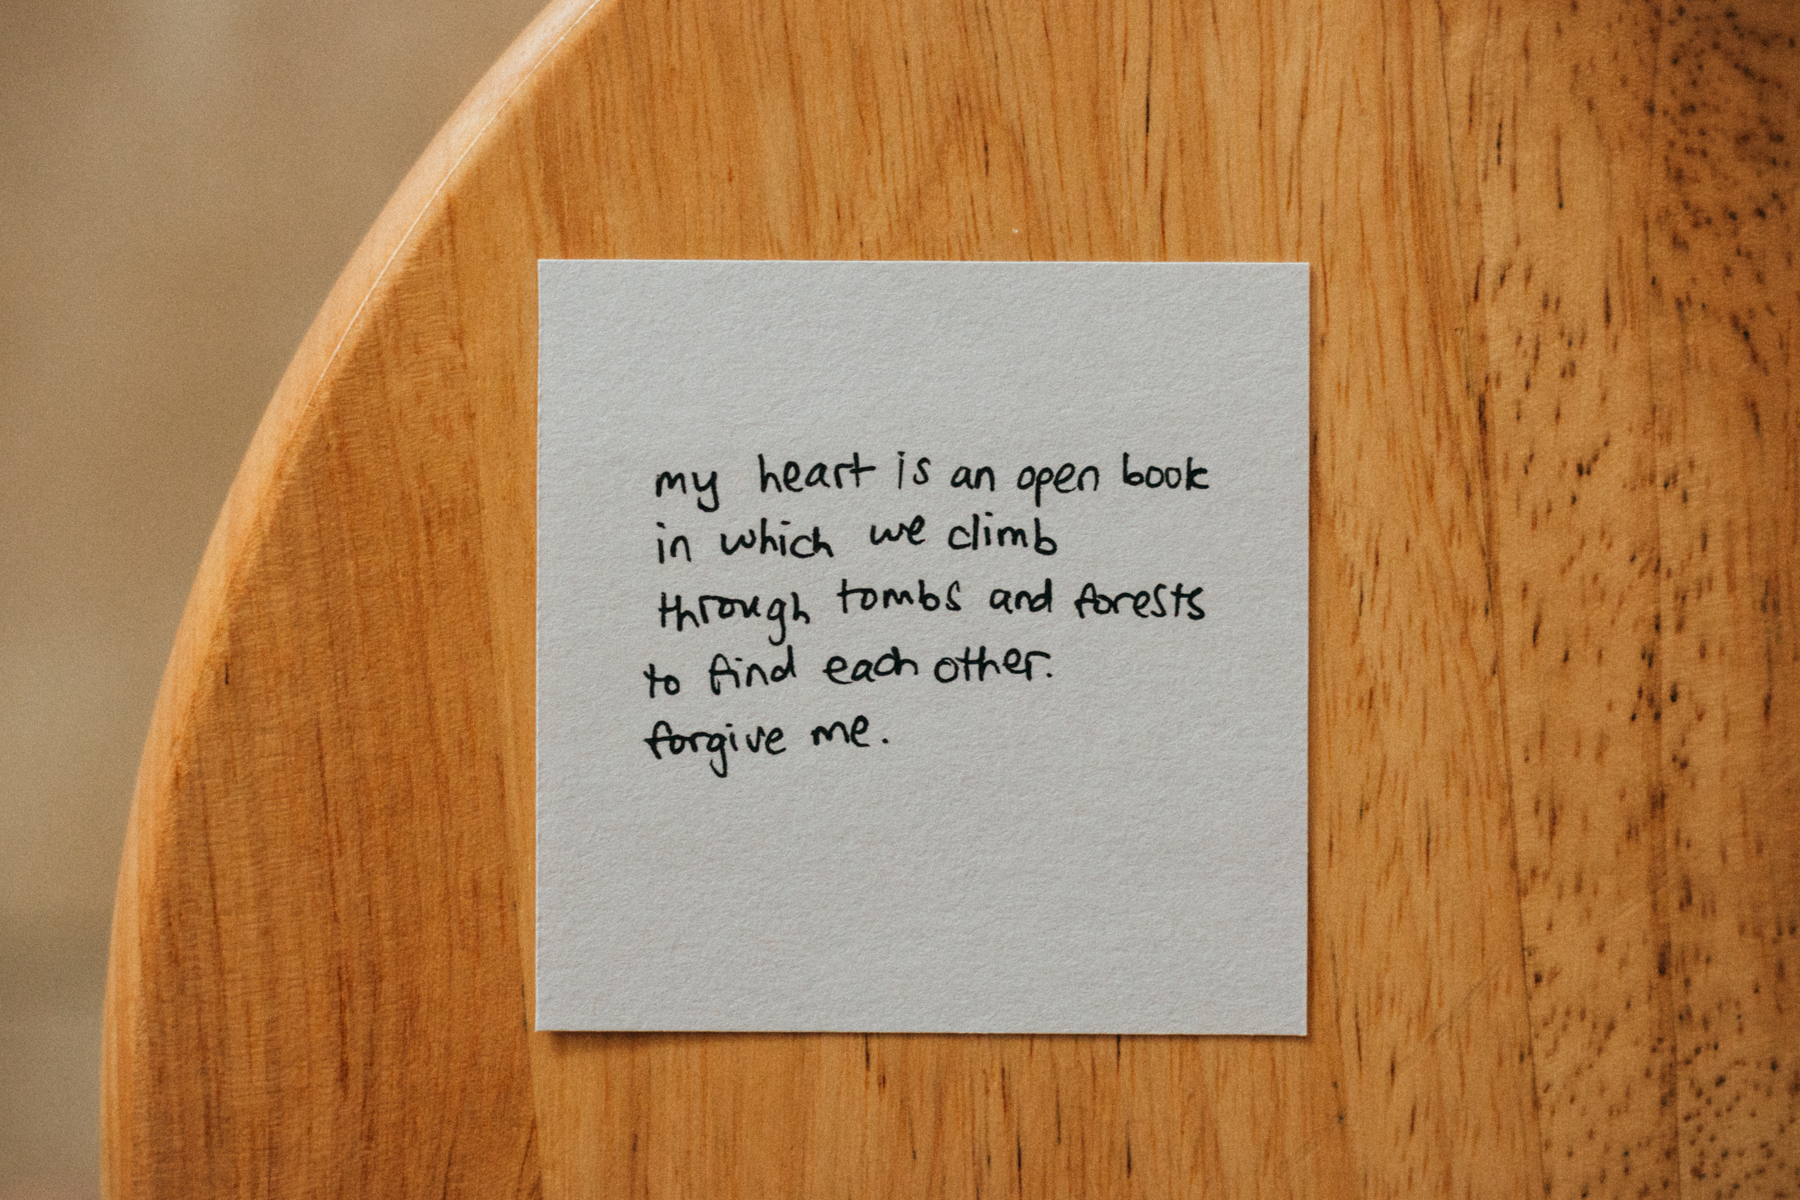 my heart is an open book
in which we climb
through tombs and forests
to find each other.
forgive me.